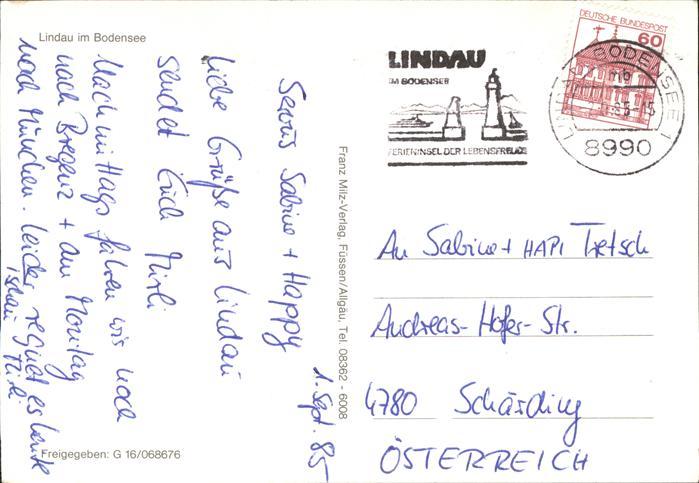 Lindau im Bodensee
Servus Sabine + Happy
1. Sept. 85
Liebe Grüße aus Lindau
sendet Euch Mirli
Nachmittags fahren wir noch
nach Bregenz + am Montag
nach München. Leider regnet es heute
Mirli
Freigegeben: G 16/068676
Franz Milz-Verlag, Füssen/Allgäu, Tel. 08362 - 6008
LINDAU
IM BODENSEE
FERIENINSEL DER LEBENSFREUDE
DEUTSCHE BUNDESPOST
60
BODENSEE 1
mb
85-15
8990
An Sabine + HAPI Tretsch
Andreas-Hofer-Str.
4780 Schärding
ÖSTERREICH